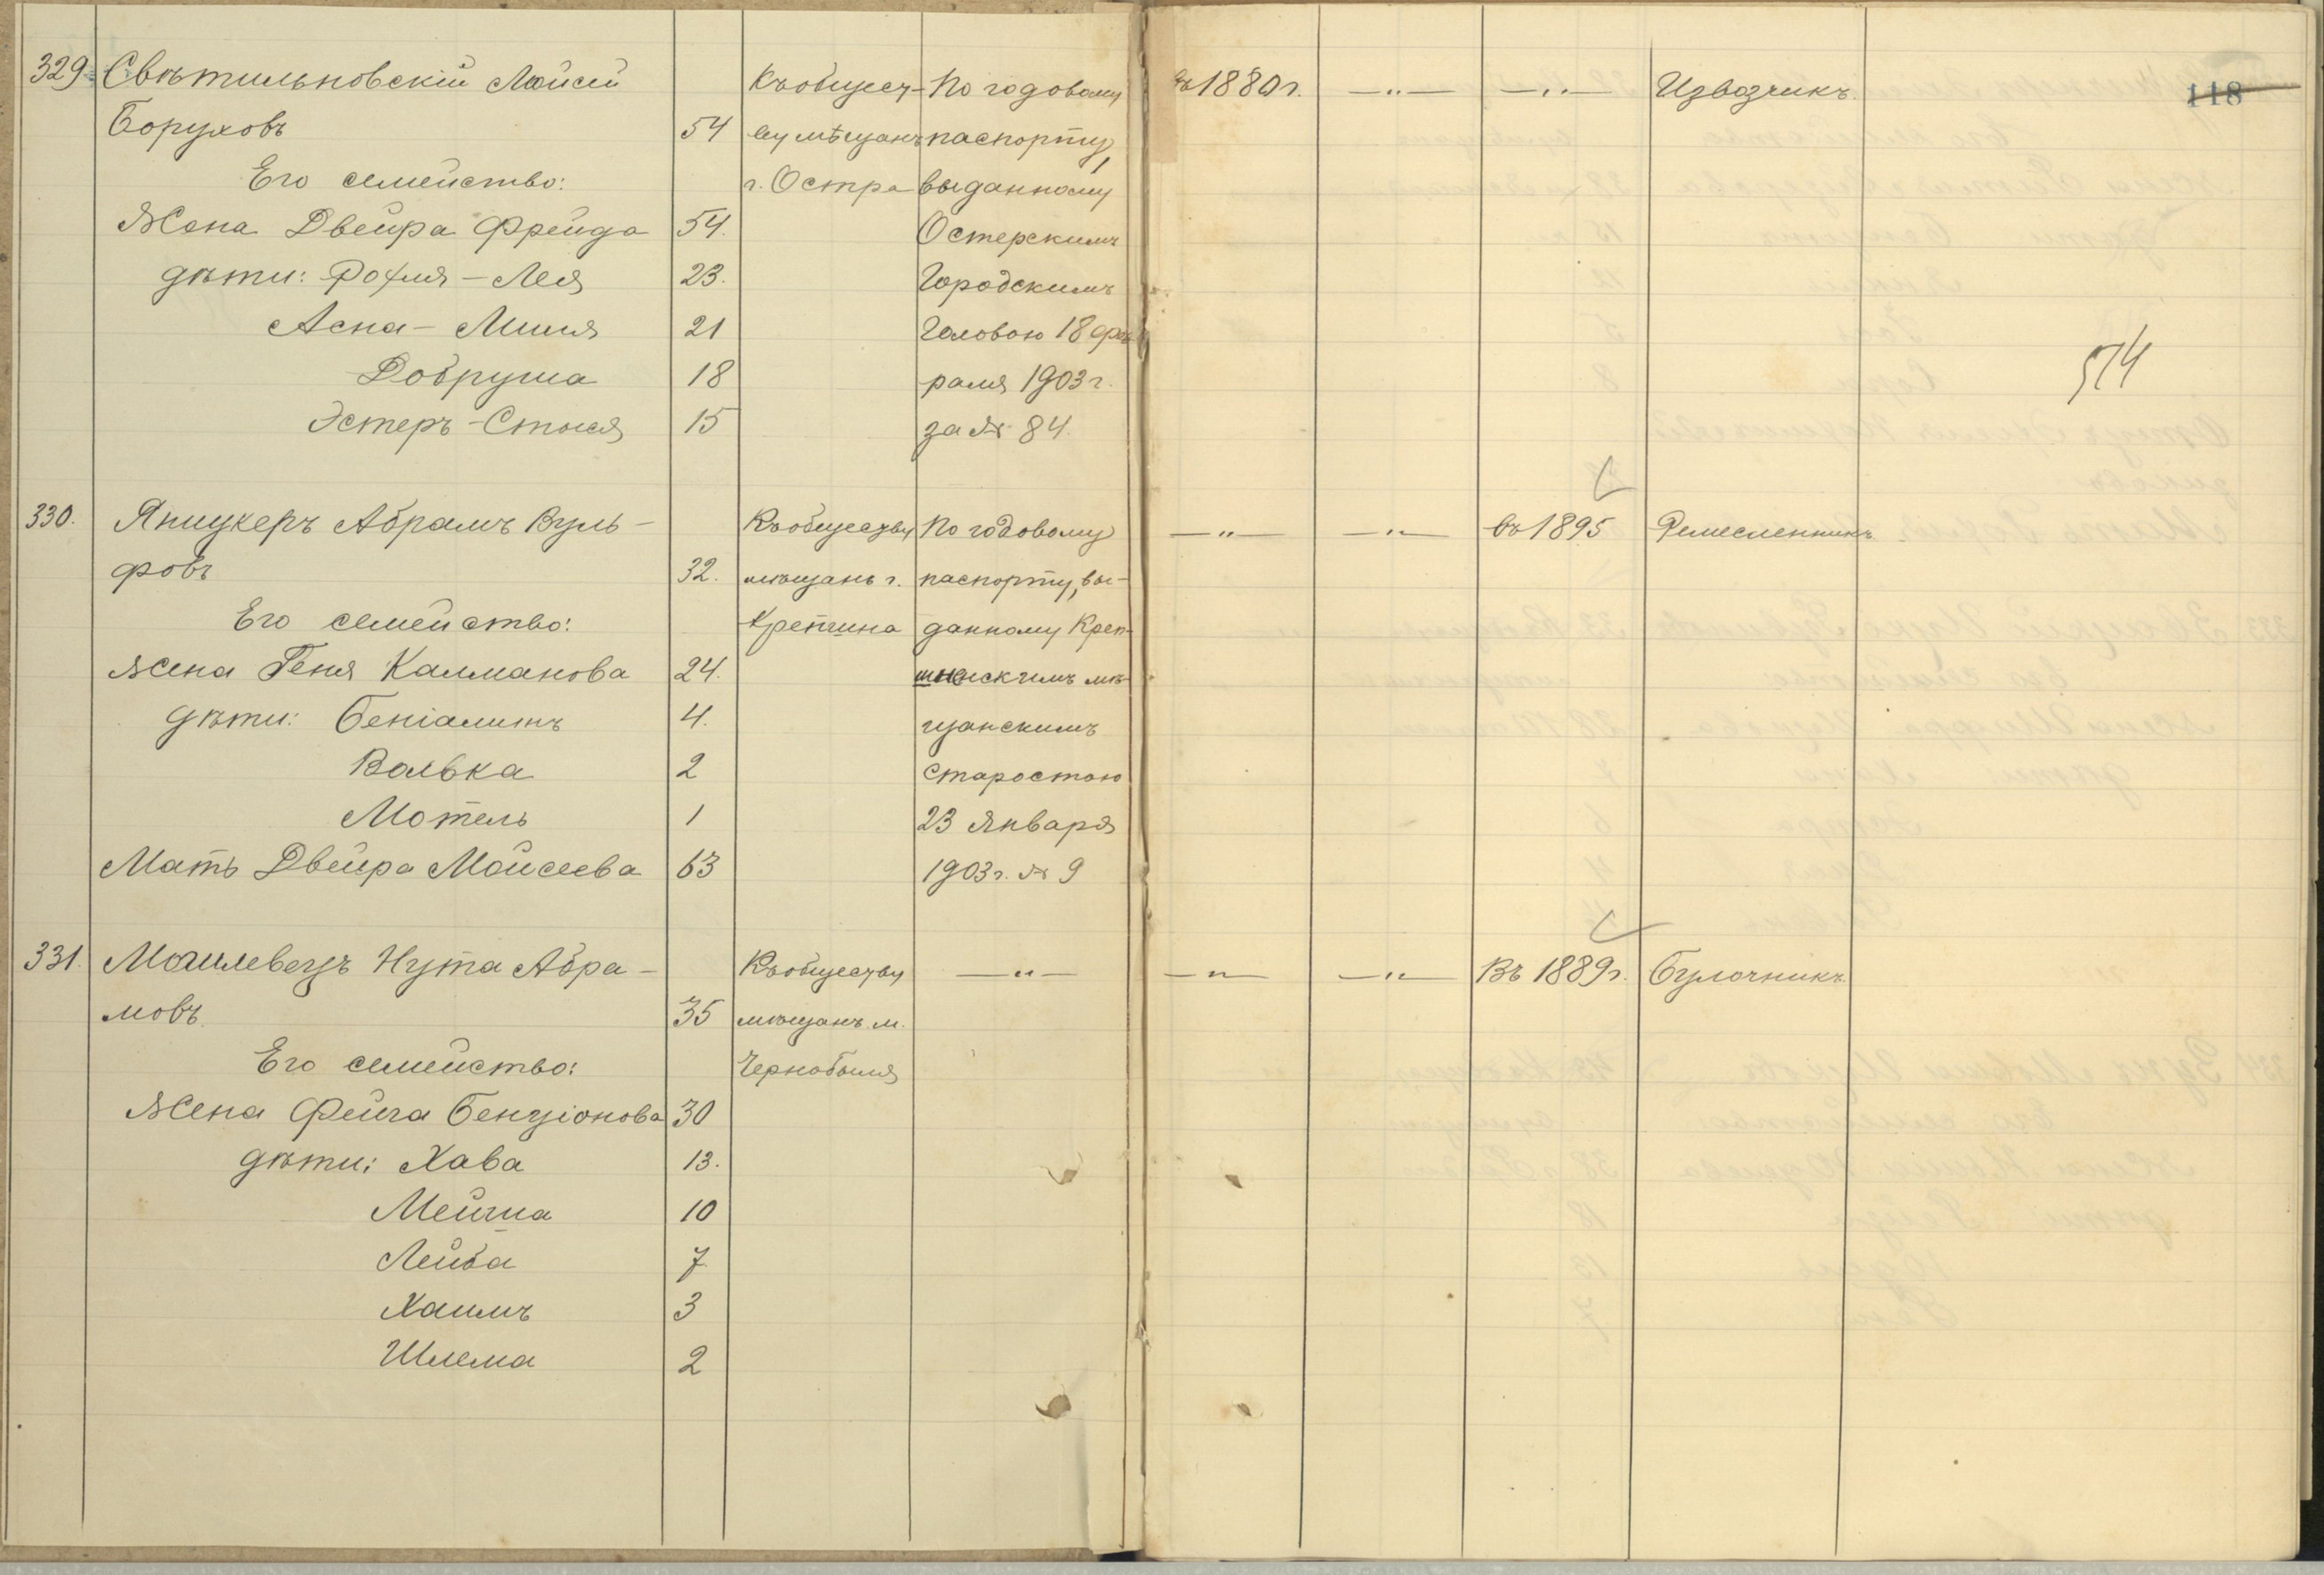 329 Свѣтильновскій Мойсей Къ общест- По годовому въ 1880 г. —"— —"— Извозчикъ. 118
Боруховъ 54 ву мѣщанъ паспорту,
Его семейство: г. Остра выданному
Жена Двейра Фрейда 54. Остерскимъ
дѣти: Рохля - Лея 23. Городскимъ
Асна - 21 Головою 18 фев
Добруша 18 раля 1903 г. 574
Эстеръ - 15 за № 84.
330. Янцукеръ Абрамъ Вуль- Къ обществу По годовому —"— —"— въ 1895 Ремесленникъ
фовъ 32. мѣщанъ г. паспорту, вы-
Его семейство: данному
Жена Геня Калманова 24. мѣ-
дѣти: Беніаминъ 4. щанскимъ
Волька 2 старостою
Мотель 1 23 Января
Мать Двейра Мойсеева 63 1903 г. № 9
331. Могилевецъ Нута Абра- Къ обществу —"— —"— —"— Въ 1889 г. Булочникъ.
мовъ 35 мѣщанъ м.
Его семейство: Чернобыля
Жена Фейга Бенціонова 30
дѣти: Хава 13.
10
Лейба 7
Хаимъ 3
Шлема 2